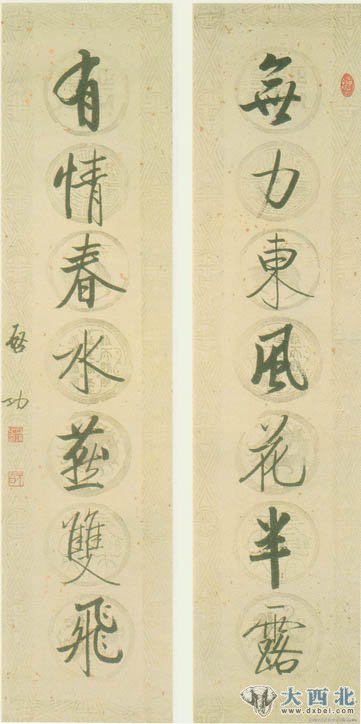 無力東風花半露
有情春水燕雙飛
啟功
大西北
www.dxbei.com